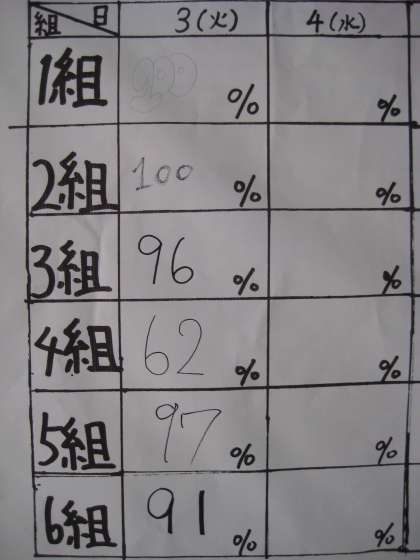 組 日 3(火) 4(水)
1組 % %
2組 100 % %
3組 96 % %
4組 62 % %
5組 97 % %
6組 91 % %